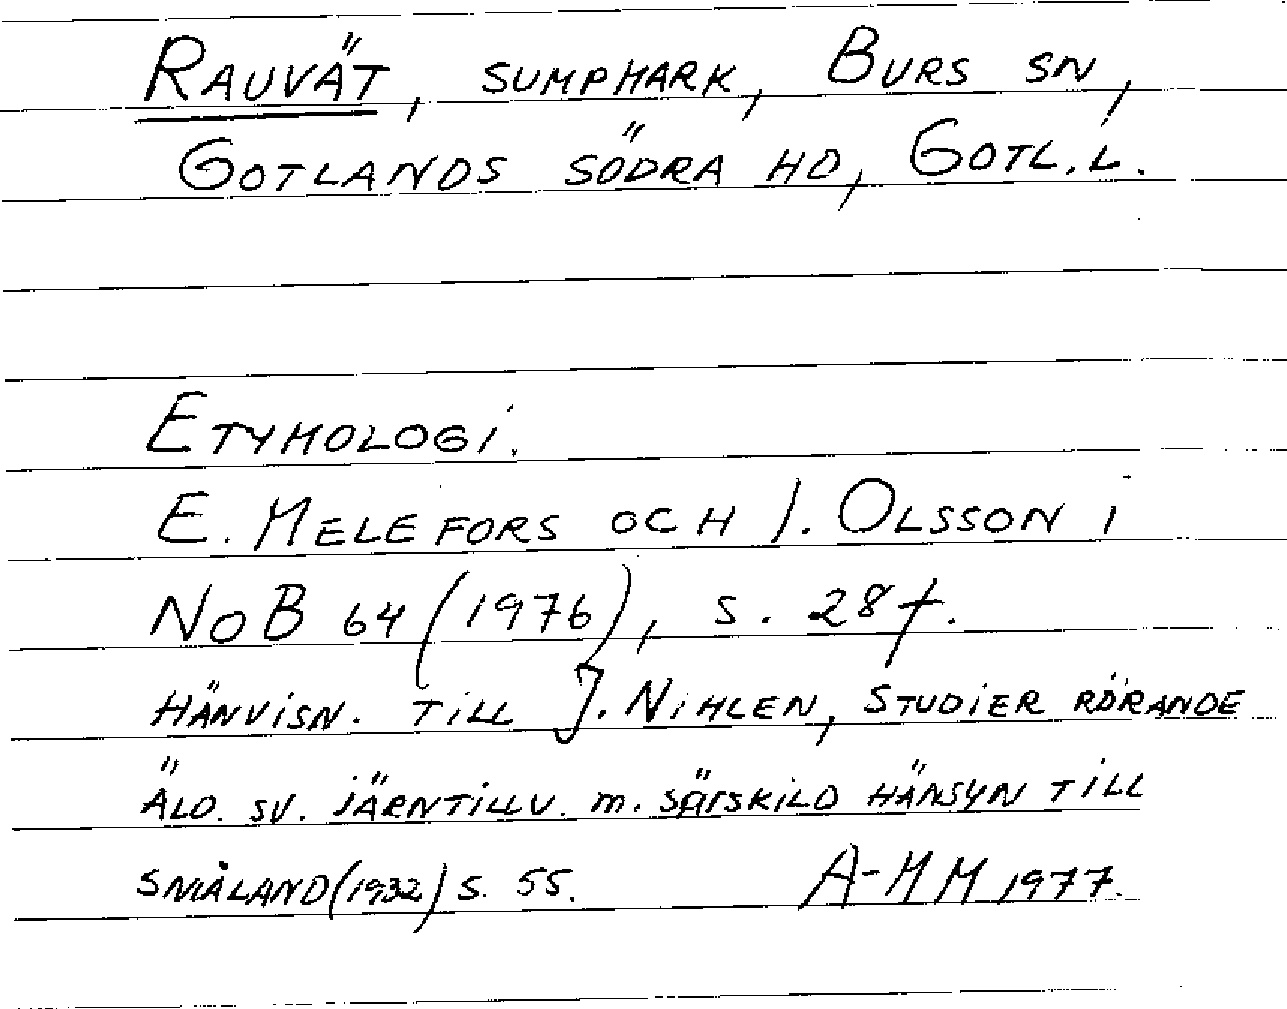 RAUVÄT, SUMPMARK, BURS SN,
GOTLANDS SÖDRA HD, GOTL. L.
ETYMOLOGI.
E. MELEFORS OCH I. OLSSON I
NOB 64 (1976), S. 28 f.
HÄNVISN. TILL J. NIHLEN, STUDIER RÖRANDE
ÄLD. SV. JÄRNTILLV. M. SÄRSKILD HÄNSYN TILL
SMÅLAND (1932) S. 55. A-MM 1977.